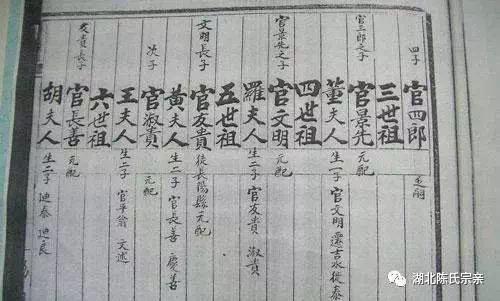 四子 官四郎 嗣
三世祖
官三郎之子 官景先 元配
董夫人 生一子 官文明 遷吉水 泰
四世祖
官景先之子 官文明 元配
羅夫人 生二子 官友貴 淑貴
五世祖
文明長子 官友貴 長陽縣元配
黃夫人 生二子 官長善 慶善
次子 官淑貴 元配
王夫人 生二子 官平翁 文述
六世祖
友貴長子 官長善 元配
胡夫人 生二子 迪泰 迪良
湖北陈氏宗亲